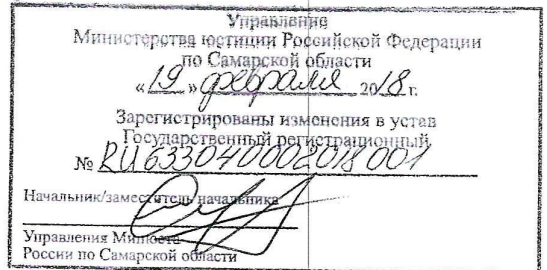 Управление
Министерства юстиции Российской Федерации
по Самарской области
«19» февраля 2018 г.
Зарегистрированы изменения в устав
Государственный регистрационный
№ RU633040002018001
Начальник/заместитель начальника
Управления Минюста
России по Самарской области